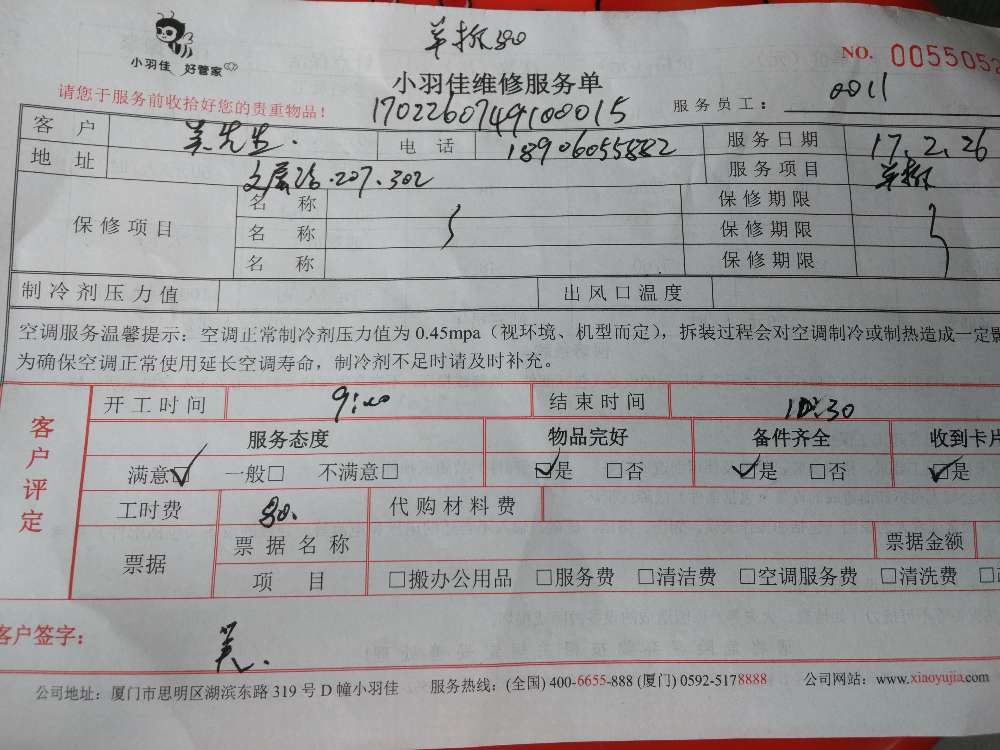 单拆80
小羽佳 好管家
小羽佳维修服务单
NO. 0055052
请您于服务前收拾好您的贵重物品！
1702260749100015
服务员工： 0011
客户 先生. 电话 18906055882 服务日期 17.2.26
地址 207.302 服务项目 单拆
保修项目 名称 保修期限
名称 保修期限
名称 保修期限
制冷剂压力值 出风口温度
空调服务温馨提示：空调正常制冷剂压力值为 0.45mpa（视环境、机型而定），拆装过程会对空调制冷或制热造成一定
为确保空调正常使用延长空调寿命，制冷剂不足时请及时补充。
客户评定
开工时间 9:00 结束时间 10:30
服务态度 物品完好 备件齐全 收到卡片
满意☑ 一般□ 不满意□ ☑是 □否 ☑是 □否 ☑是
工时费 80. 代购材料费
票据 票据名称 票据金额
项目 □搬办公用品 □服务费 □清洁费 □空调服务费 □清洗费
客户签字：
公司地址：厦门市思明区湖滨东路 319 号 D 幢小羽佳 服务热线：(全国) 400-6655-888 (厦门) 0592-5178888 公司网站：www.xiaoyujia.com